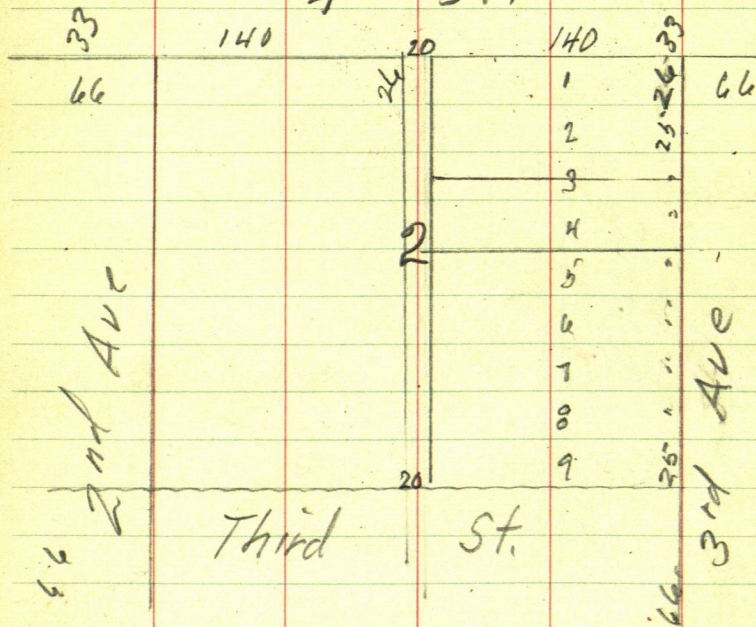 St.
33 140 20 140 33
66 26 1 26 66
2 25
3 "
4 "
2
5 "
6 "
7 "
8 "
9 25
20
2nd Ave
3rd Ave
Third St.
66 66